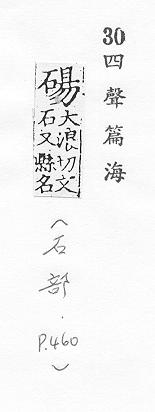 30四聲篇海
碭
大浪切文
石又縣名
(石部.P.460)